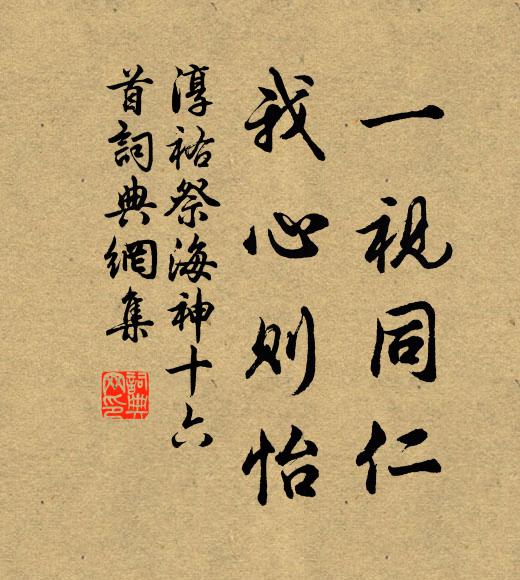 一視同仁
我心則怡
淳祐祭海神十六
首詞典網集
詞典